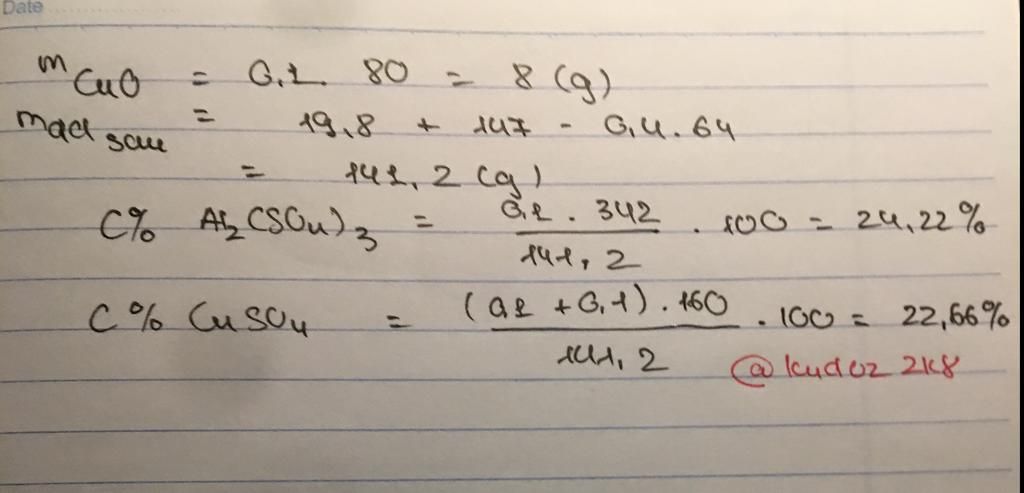 Date
mCuO = 0,1. 80 = 8 (g)
mdd sau = 19,8 + 147 - 0,4.64
= 141,2 (g)
C% Al₂(SO₄)₃ = 0,1 . 342 / 141,2 . 100 = 24,22%
C% CuSO₄ = (0,1 + 0,1) . 160 / 141,2 . 100 = 22,66%
@kudoz 2k8